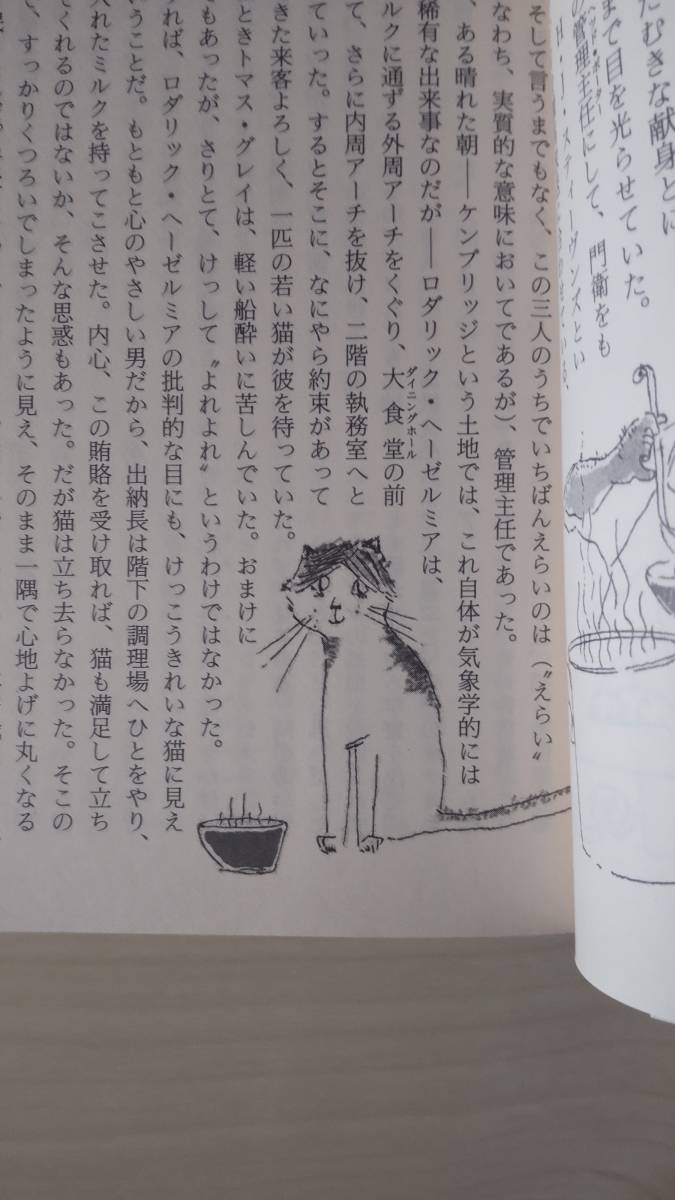 たむきな献身とに
まで目を光らせていた。
の管理主任にして、門衛をも
ヘッド・ポーター
H・J・スティーヴンズとい
そして言うまでもなく、この三人のうちでいちばんえらいのは（〝えらい〟
なわち、実質的な意味においてであるが）、管理主任であった。
、ある晴れた朝――ケンブリッジという土地では、これ自体が気象学的には
稀有な出来事なのだが――ロダリック・ヘーゼルミアは、
ルクに通ずる外周アーチをくぐり、大食堂の前
ダイニングホール
て、さらに内周アーチを抜け、二階の執務室へと
ていった。するとそこに、なにやら約束があって
きた来客よろしく、一匹の若い猫が彼を待っていた。
ときトマス・グレイは、軽い船酔いに苦しんでいた。おまけに
でもあったが、さりとて、けっして〝よれよれ〟というわけではなかった。
れば、ロダリック・ヘーゼルミアの批判的な目にも、けっこうきれいな猫に見え
うことだ。もともと心のやさしい男だから、出納長は階下の調理場へひとをやり、
入れたミルクを持ってこさせた。内心、この賄賂を受け取れば、猫も満足して立ち
てくれるのではないか、そんな思惑もあった。だが猫は立ち去らなかった。そこの
で、すっかりくつろいでしまったように見え、そのまま一隅で心地よげに丸くなる